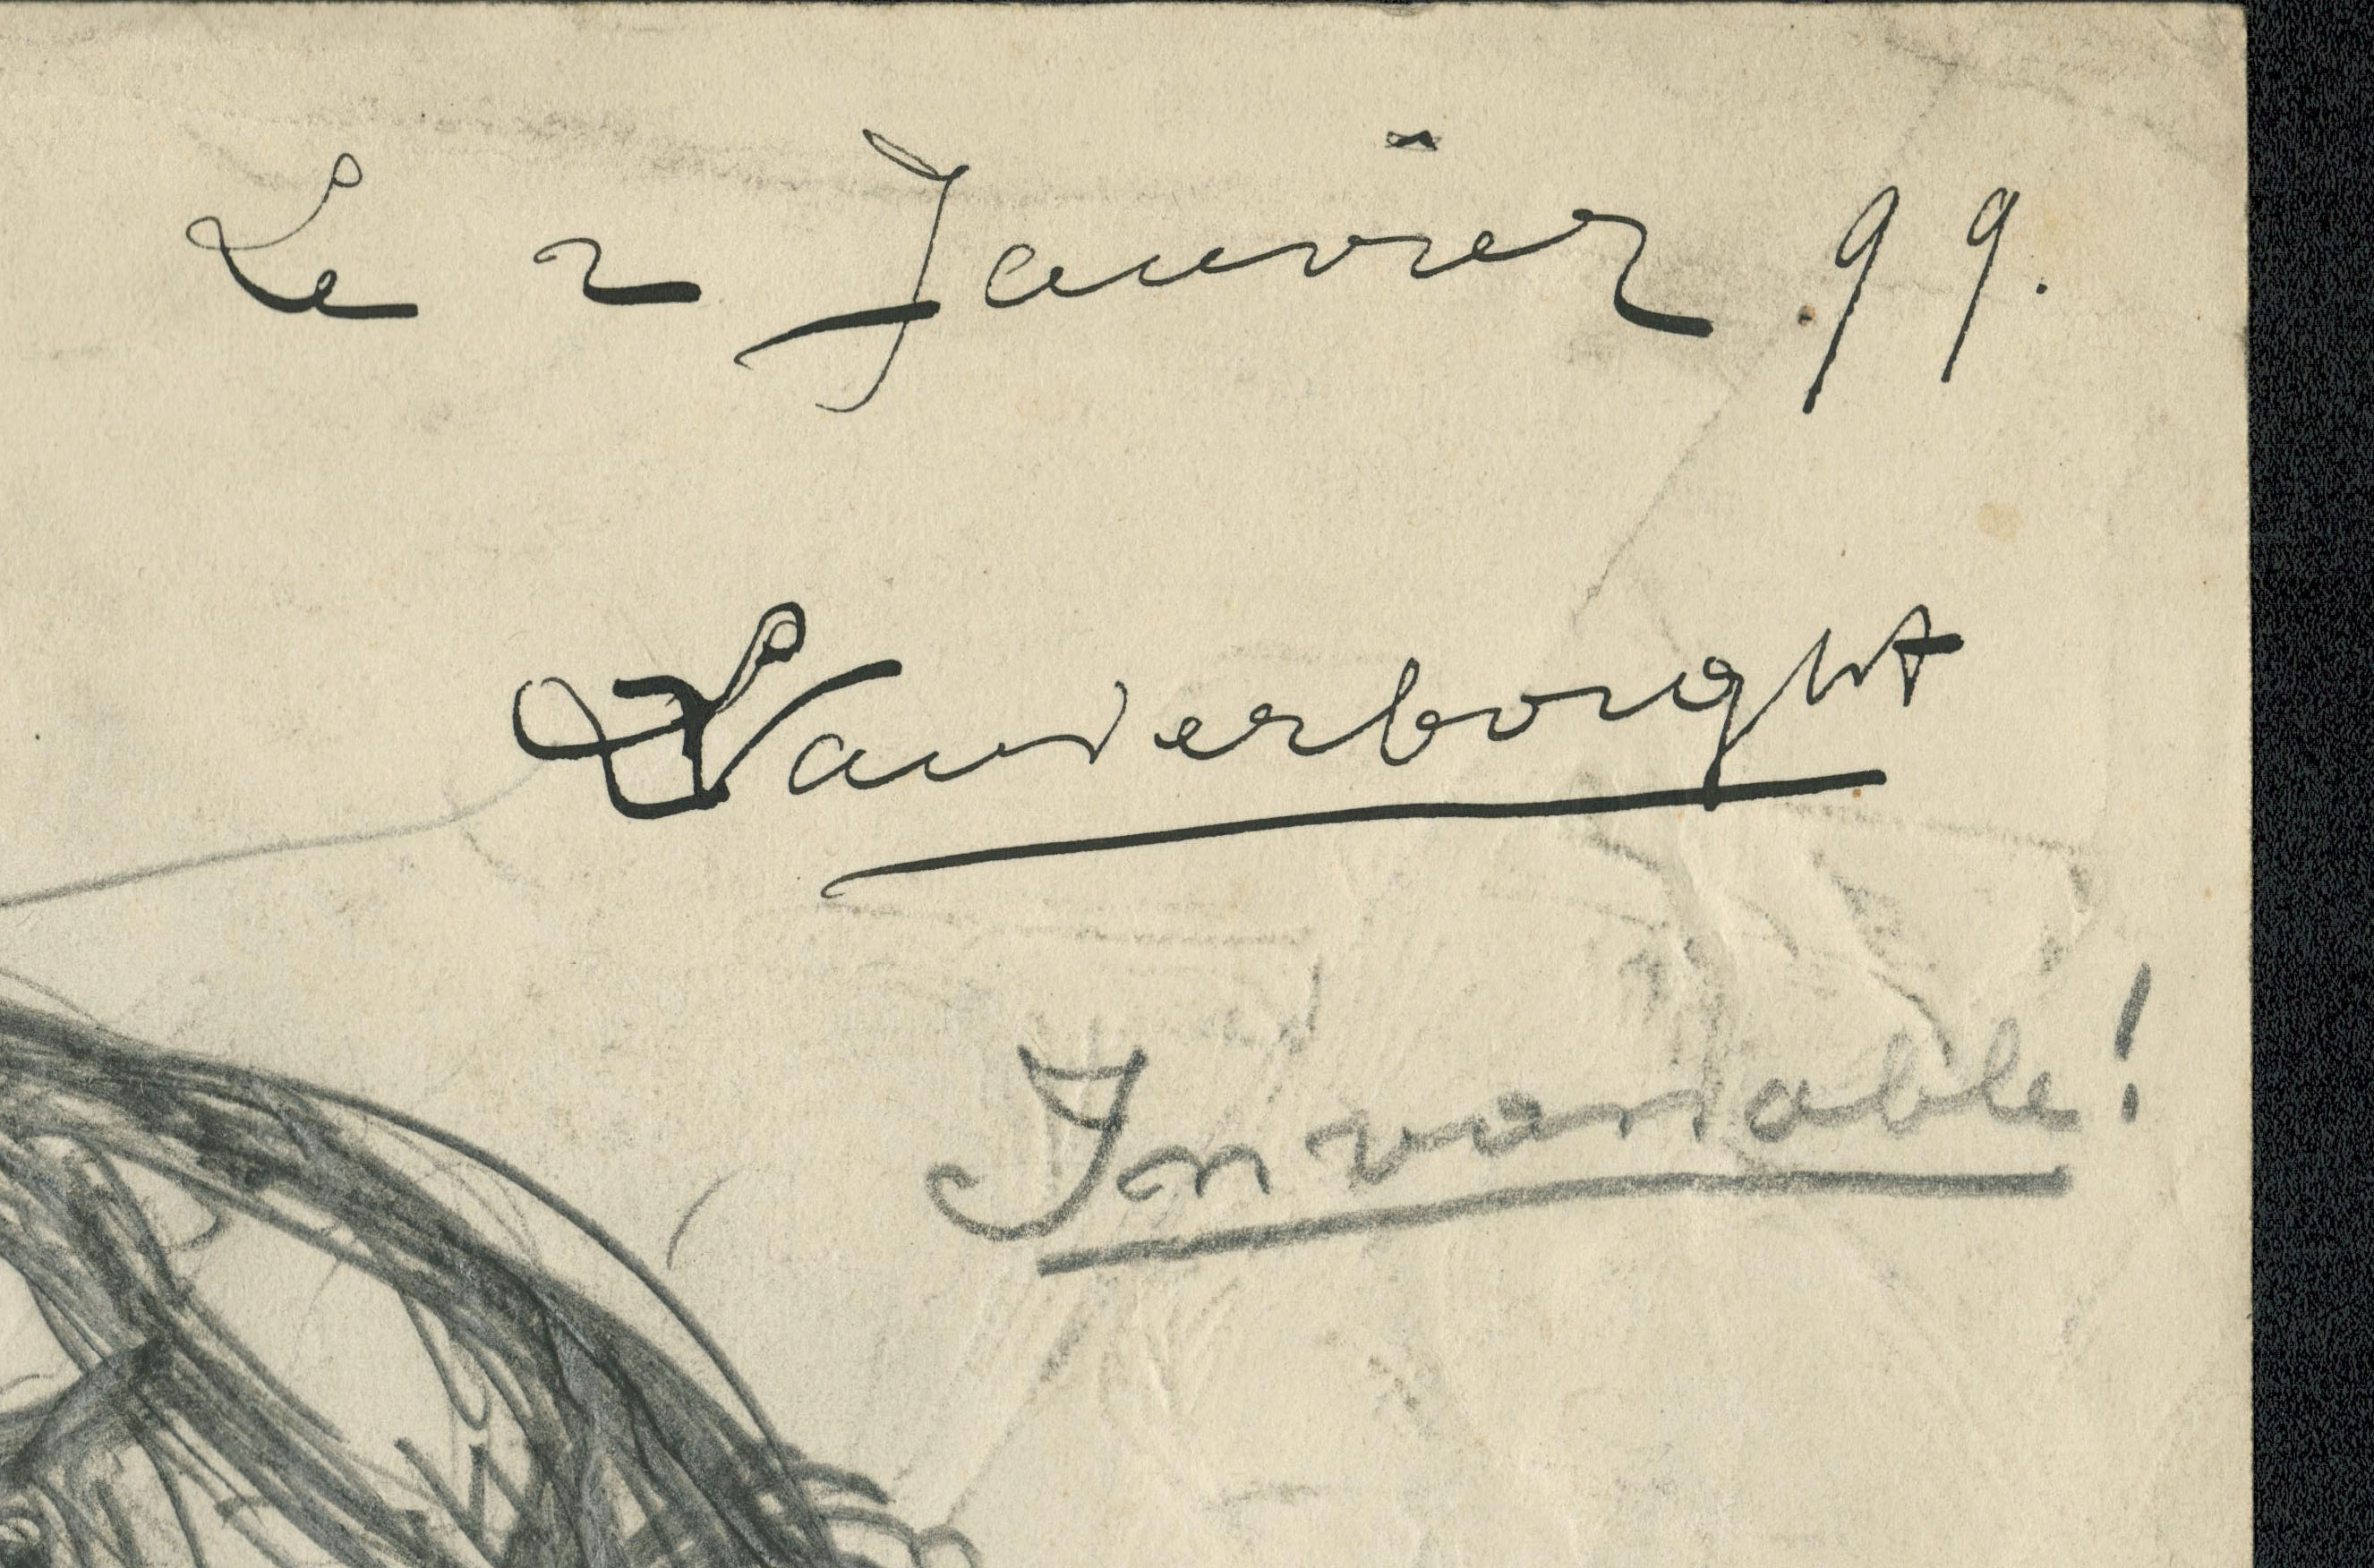 Le 2 Janvier 99.
Vanderborght
Invariable!